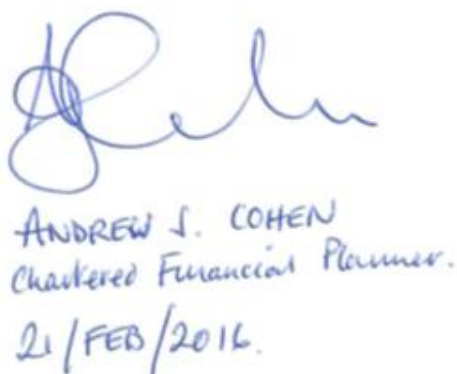 ANDREW J. COHEN
Chartered Financial Planner.
21/FEB/2016.